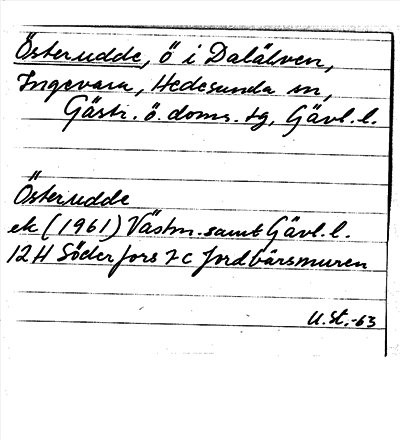 Österudde, ö i Dalälven,
Ingevara, Hedesunda sn,
Gästr. ö. doms. tg, Gävl. l.
Österudde
ek (1961) Västm. samt Gävl. l.
12H Söderfors 7c Jordbärsmuren
U.St.-63